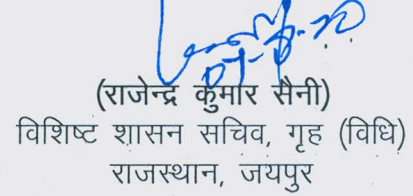 (राजेन्द्र कुमार सैनी)
विशिष्ट शासन सचिव, गृह (विधि)
राजस्थान, जयपुर